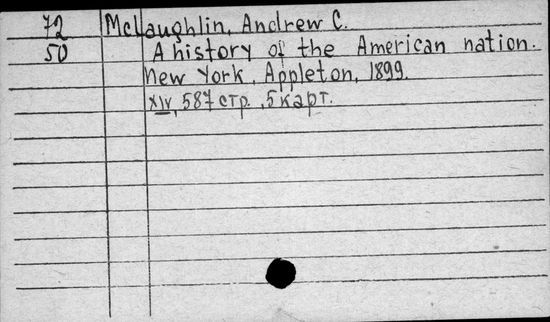 72 McLaughlin, Andrew C.
50 A history of the American nation.
New York, Appleton, 1899.
XIV, 587 стр., 5 карт.